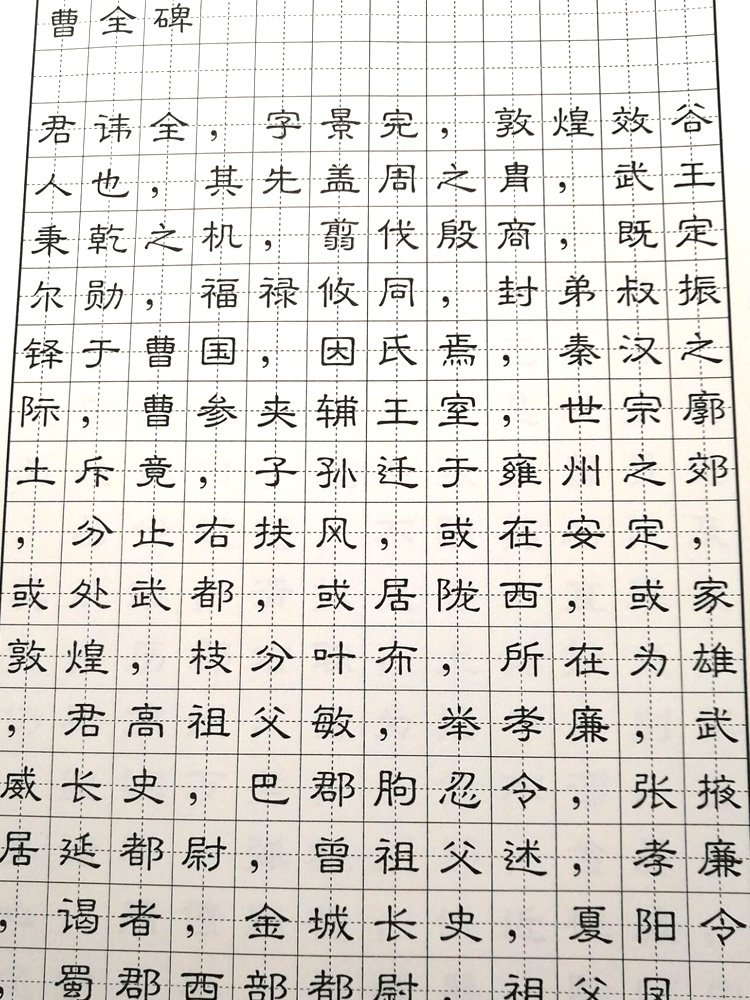 曹全碑
君讳全，字景完，敦煌效谷
人也，其先盖周之胄，武王
秉乾之机，翦伐殷商，既定
尔勋，福禄攸同，封弟叔振
铎于曹国，因氏焉，秦汉之
际，曹参夹辅王室，世宗廓
土斥竟，子孙迁于雍州之郊
，分止右扶风，或在安定，
或处武都，或居陇西，或家
敦煌，枝分叶布，所在为雄
，君高祖父敏，举孝廉，武
威长史，巴郡朐忍令，张掖
居延都尉，曾祖父述，孝廉
，谒者，金城长史，夏阳令
，蜀郡西部都尉，祖父凤，